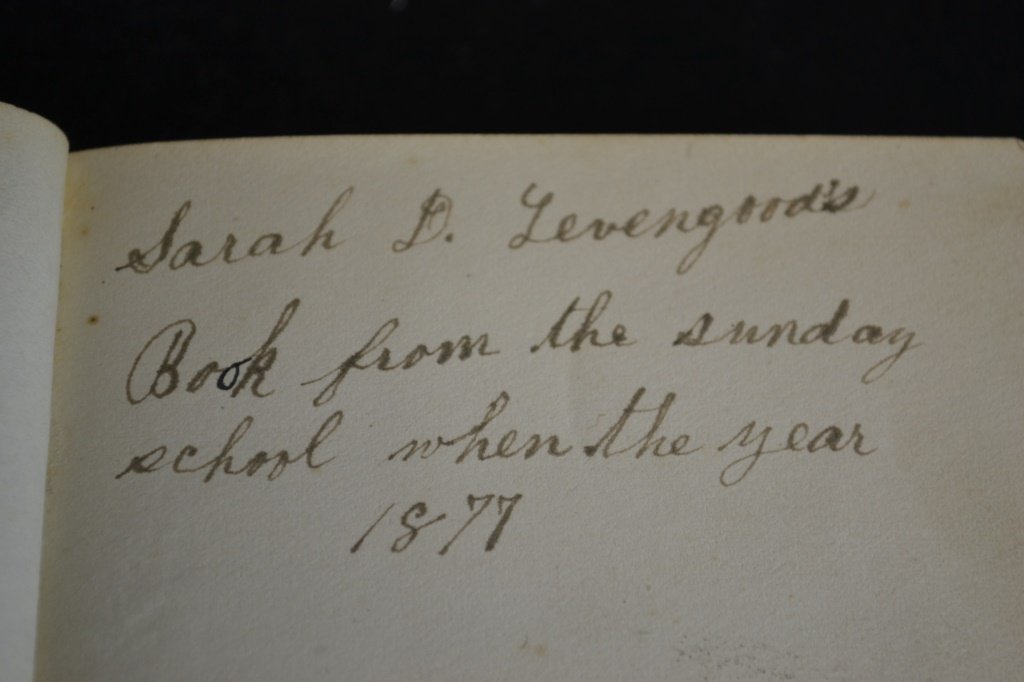 Sarah D. Levengood's
Book from the sunday
school when the year
1877